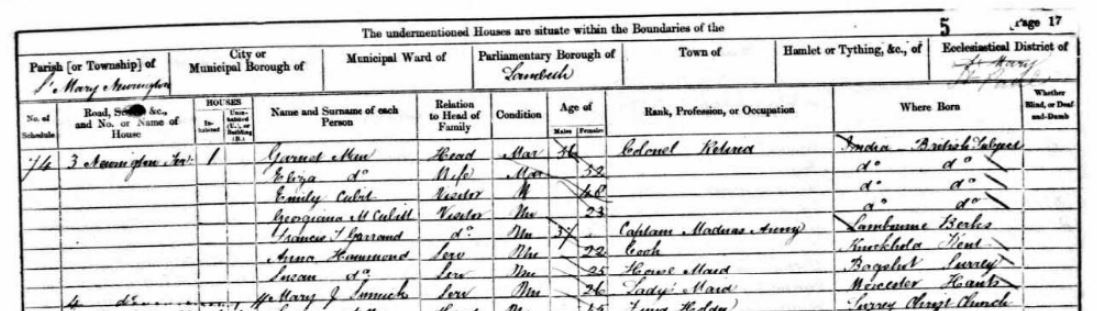 The undermentioned Houses are situate within the Boundaries of the
5 Page 17
Parish [or Township] of
City or Municipal Borough of
Municipal Ward of
Parliamentary Borough of
Town of
Hamlet or Tything, &c., of
Ecclesiastical District of
St Mary Newington
Lambeth
St Mary
No. of Schedule
Road, &c., and No. or Name of House
HOUSES
Inhabited
Uninhabited (U.), or Building (B.)
Name and Surname of each Person
Relation to Head of Family
Condition
Age of
Males Females
Rank, Profession, or Occupation
Where Born
Whether Blind, or Deaf-and-Dumb
74 3 Newington Ter 1 Garnet Head Mar 56 Colonel Retired India - British Subject
Eliza do Wife Mar 52 do do
Emily Visitor W 48 do do
Georgiana M Cubitt Visitor Un 23 do do
Francis T Garrard do Un 37 Captain Madras Army Lambourne Berks
Anna Hammond Serv Un 22 Cook Knockhold Kent
Susan do Serv Un 25 House Maid Bagshot Surrey
Mary J Serv Un 26 Lady's Maid Hants
4 Surrey Christ Church